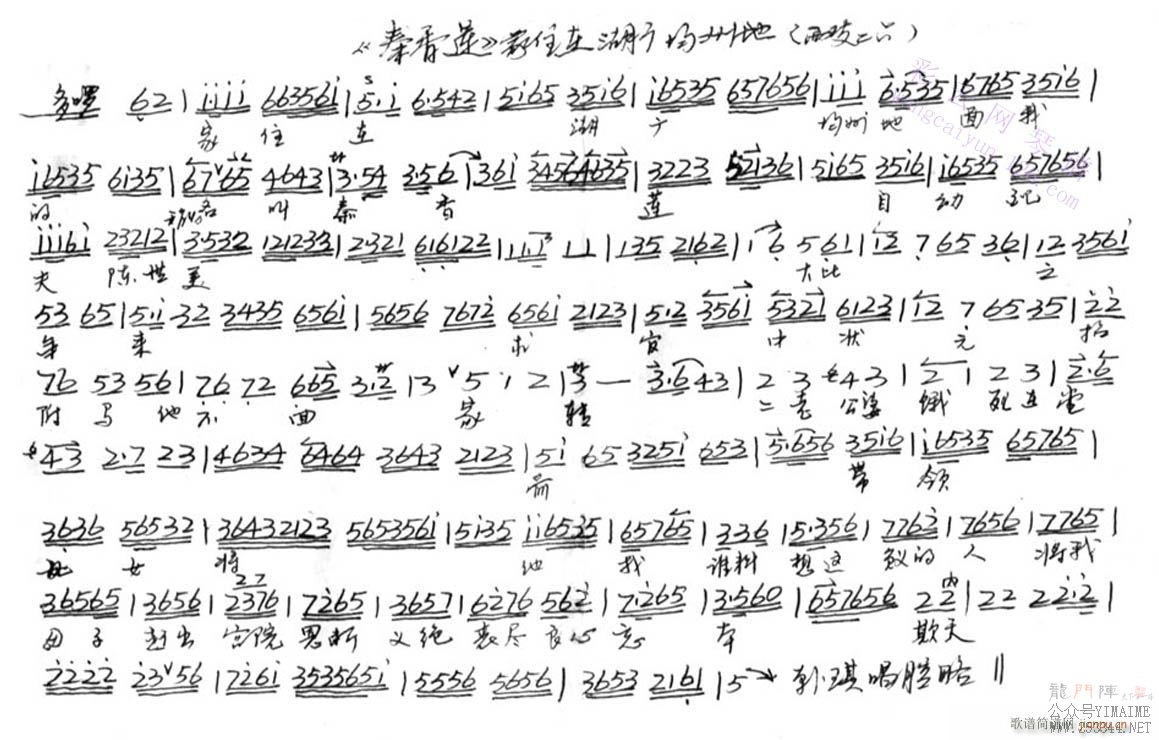 《秦香莲》家住在湖广均州地（西皮二六）
62 | 1111 663561 | 5·1 6·542 | 5165 3516 | 16535 657656 | 111 6·535 | 6765 3516 |
家 住 在 湖 广 均州 地 面 我
16535 6135 | 67 65 4643 | 3·54 3·56 | 361 34564635 | 3223 52136 | 5165 3516 | 16535 657656 |
的 名 叫 秦 香 莲 自 幼 配
11161 23212 | 3·532 121233 | 2321 616122 | 111 11 | 135 2162 | 1 6 561 | 12 7 65 36 | 12 3561
夫 陈世美 大比 之
53 65 | 5·1 32 3435 6561 | 5656 7672 6561 2123 | 5·2 3561 5321 6123 | 12 7 65 35 | 22
年 来 求 官 中 状 元 招
76 53 56 | 76 72 665 3·2 | 3 5 1 2 | 3 — 3·6 43 | 2 3 43 | 2 1 2 3 | 2·6
附 马 他 不 回 家 转 二老 公婆 饿 死 在 堂
43 2·7 23 | 4634 6464 3643 2123 | 51 65 3251 653 | 5·656 3516 | 16535 65765 |
前 带 领
3636 56532 | 36432123 5653561 | 5135 116535 | 65765 | 336 | 5·356 | 7762 | 7656 | 7765 |
女 将 他 我 谁料 想这 狠的 人 将我
36565 | 3656 | 2376 | 7265 | 3657 | 6276 562 | 7·265 | 3·560 | 657656 22 | 22 22·2 |
27
内
母子 赶出 宫院 恩断 义绝 丧尽 良心 忘 本 欺天
2222 23 56 | 7261 3535651 | 5556 5656 | 3653 2161 | 5 韩琪唱腔略 ‖
龍門陣
公众号YIMAIME
歌谱简谱网 jianpu.cn
www.233844.NET